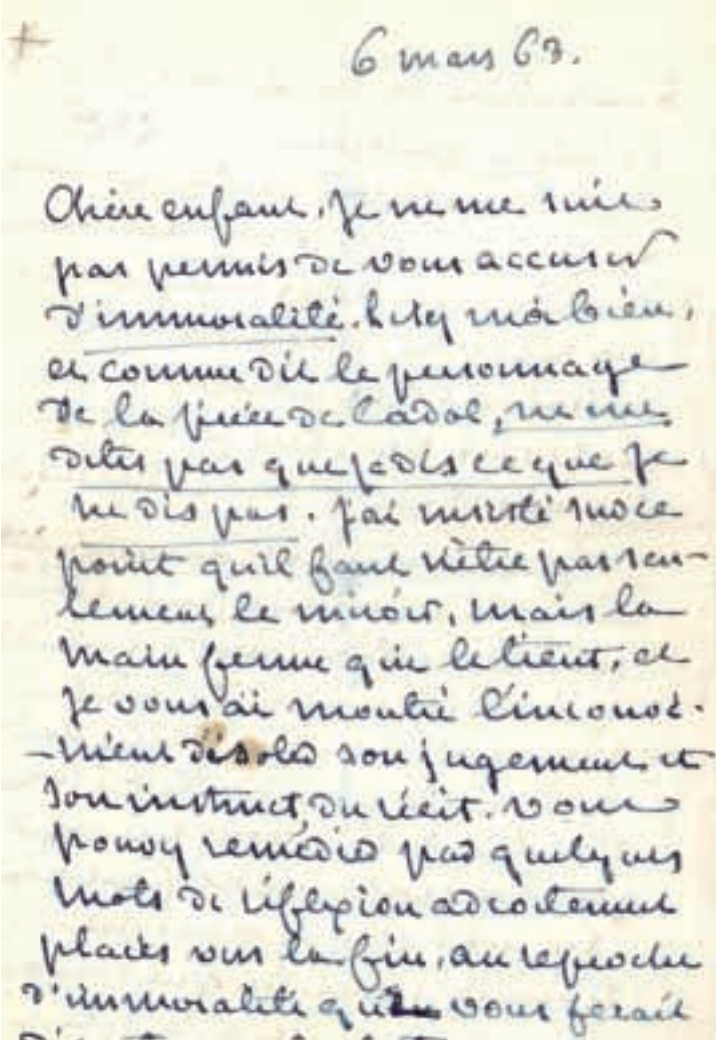 6 mars 63.
Chère enfant. Je ne me suis
pas permis de vous accuser
d'immoralité. Lisez moi bien,
et comme dit le personnage
de la pièce de Cadol, ne me
dites pas que je dis ce que je
ne dis pas. J'ai insisté sur ce
point qu'il faut n'être pas seu-
lement le miroir, mais la
main ferme qui le tient, et
je vous ai montré l'inconvé-
-nient d'isoler son jugement et
son instinct, du récit. Vous
pouvez remédier par quelques
mots de réflexion adroitement
placés vers la fin, au reproche
d'immoralité que vous ferait